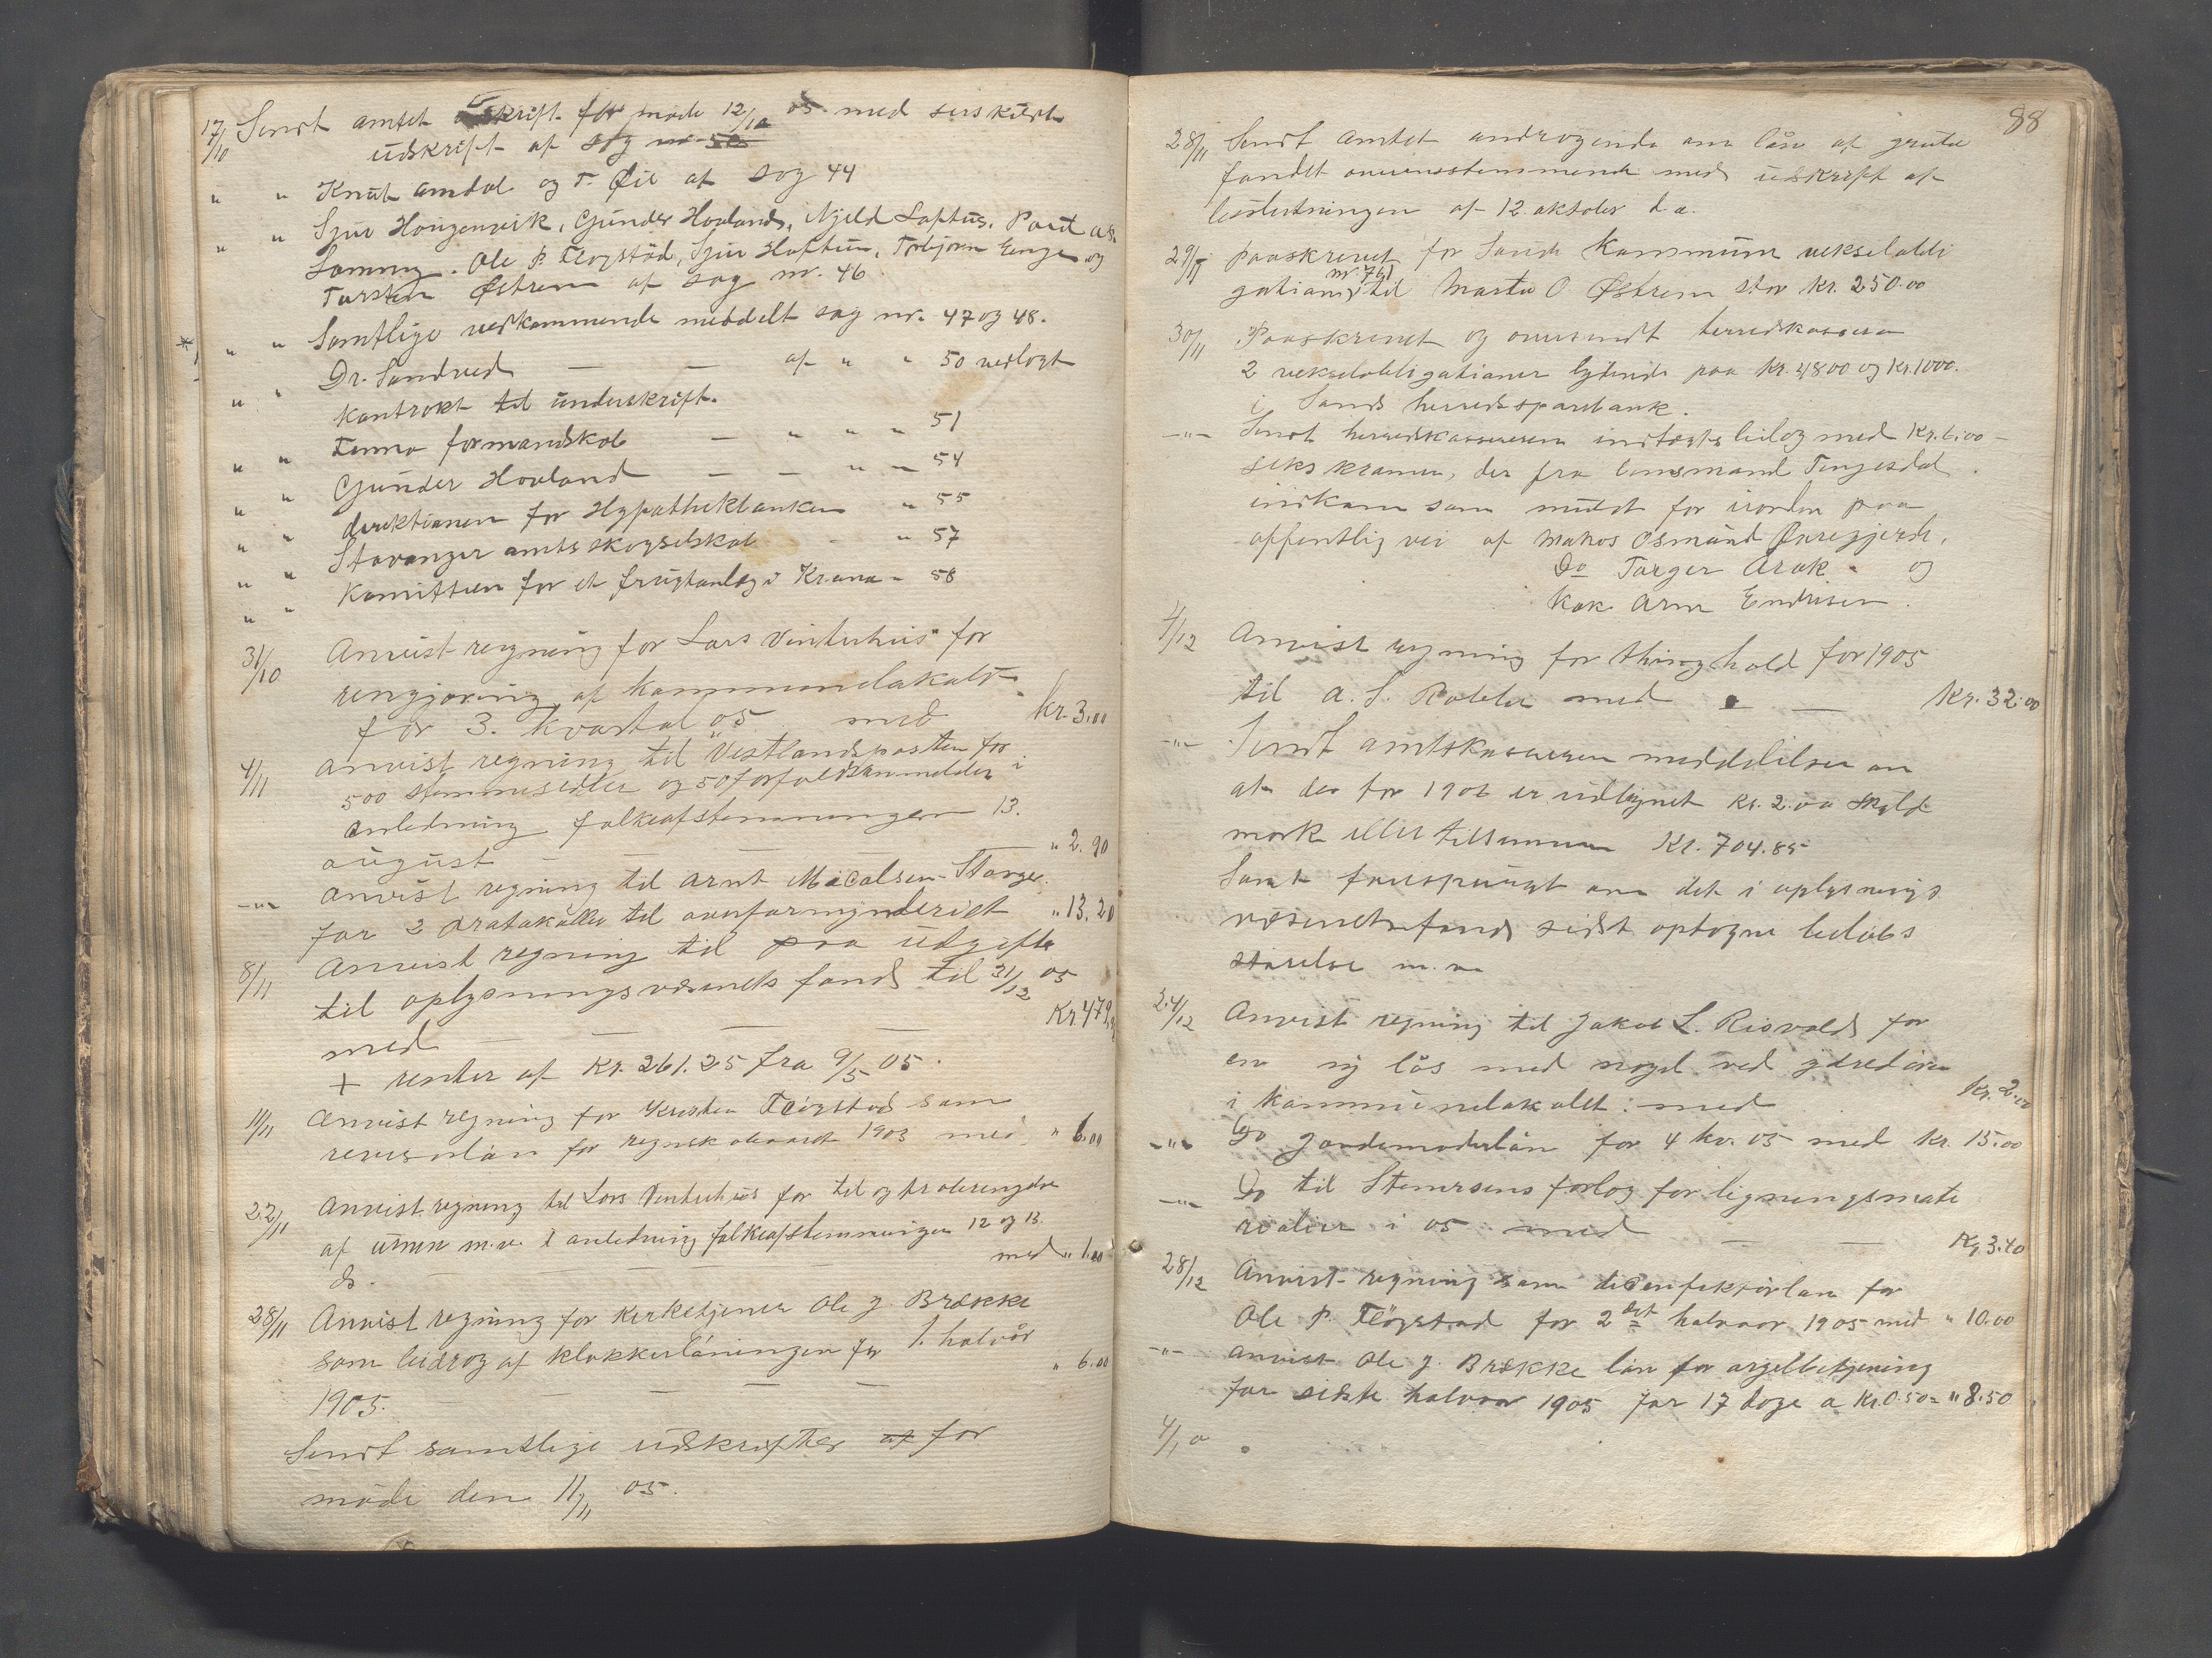 17/10 Sendt amtet udskrift for møde 12/10 05 med særskildt
udskrift af sag nr. 50
" " Knut Amdal og T. Øie af sag 44
" " Sjur Hougenvik, Gunder Hovland, Njeld Loftus, Povel as.
Løming. Ole P. Fløgstad, Sjur Hoftun, Torbjørn Enge og
Torsten Østrem af sag nr. 46
" " Samtlige vedkommende meddelt sag nr. 47 og 48.
" " Dr. Sandved — — af " " 50 vedlagt
kontrakt til underskrift.
" " Finnø formandskab — " " " 51
" " Gunder Hovland — — " " 54
" " direktionen for Hypothekbanken " 55
" " Stavanger amts skogselskab - " 57
" " Komitteen for et frugtanlæg i Krana - 58
31/10 Anvist regning for Lars Vinterhus for
rengjøring af kommunelokalet
for 3. kvartal 05 med kr. 3.00
4/11 Anvist regning til Vestlandsposten for
500 stemmesedler og 50 forfaldsanmelder i
anledning folkeafstemningen 13.
august — — — " 2.90
-"- Anvist regning til Arnt Micalsen Stavger.
for 2 protokoller til overformynderiet " 13.20
8/11 Anvist regning til paa udgifte
til oplysningsvæsenets fond til 31/12 05
med — — — Kr 479.
+ renter af Kr. 261.25 fra 9/5 05.
11/11 Anvist regning for Kristen Fløgstad som
revisorløn for regnskabsaaret 1903 med " 6.00
22/11 Anvist regning til Lars Vinterhus for til og frabringelse
af urnen m.v. i anledning folkeafstemningen 12 og 13.
ds. — — — med " 1.00
28/11 Anvist regning for Kirketjener Ole J. Brække
som bidrag af klokkerlønningen for 1. halvår
1905. — — — — " 6.00
Sendt samtlige udskrifter af for
møde den 11/11 05.
88
28/11 Sendt amtet andragende om lån af grube
fondet overensstemmende med uskrift af
beslutningen af 12. oktober d.a.
29/11 Paaskrevet for Sands kommune vekselobli
gation nr. 741 til Marta O. Østrem stor kr. 250.00
30/11 Paaskrevet og oversendt herredskassereren
2 vekselobligationer lydende paa kr. 4800 og kr. 1000.
i Sands herreds sparebank.
-"- Sendt herredskassereren indtægts bilag med kr. 6.00 -
seks kroner, der fra lensmand Tengesdal
indkom som mulct for uorden paa
offentlig vei af matros Osmund Øaregjerde,
Do Torger Årak - og
Kok Arne Endresen.
4/12 Anvist regning for thinghold for 1905
til A. S. Rabbe med — Kr. 32.00
-"- Sendt amtskassereren meddelelse om
at der for 1906 er udlignet kr. 2.00 skyld
mark eller tilsammen Kr. 704.85
Samt forespurgt om det i oplysnings
væsenets fond sidst optagne beløbs
størelse m.m.
24/12 Anvist regning til Jakob L. Risvold for
en ny lås med nøgel ved ydredøren
i kommunelokalet: med Kr. 2.00
-"- Do jordemoderløn for 4 kv. 05 med kr. 15.00
-"- Do til Stenersens forlag for ligningsmate
rialier i 05 med — — Kr. 3.40
28/12 Anvist regning som disenfektørløn for
Ole P. Fløgstad for 2det halvaar 1905 med " 10.00
-"- Anvist Ole J. Brække løn for orgelbetjening
for sidste halvaar 1905 for 17 dage a Kr. 0.50 = " 8.50
4/1 0